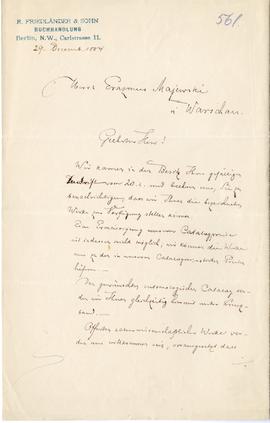 561.
R. FRIEDLÄNDER & SOHN
BUCHHANDLUNG
Berlin, N.W., Carlstrasse 11.
29. Decemb. 1884
Herrn Erasmus Majewski
in Warschau.
Geehrter Herr!
Wir kamen in den Besitz Ihrer gefälligen
Zuschrift vom 20. c. und beehren uns, Sie zu
benachrichtigen dass wir Ihnen die
Werke zur Verfügung stellen können.
Eine Ermässigung unserer Catalogpreise
ist indessen nicht möglich, wir können die Werke
nur zu den in unseren Catalogen Preisen
liefern.
Den gewünschten entomologischen Catalog
wir Ihnen gleichzeitig hiermit unter
band.
naturwissenschaftliche Werke
uns willkommen sein, vorausgesetzt dass